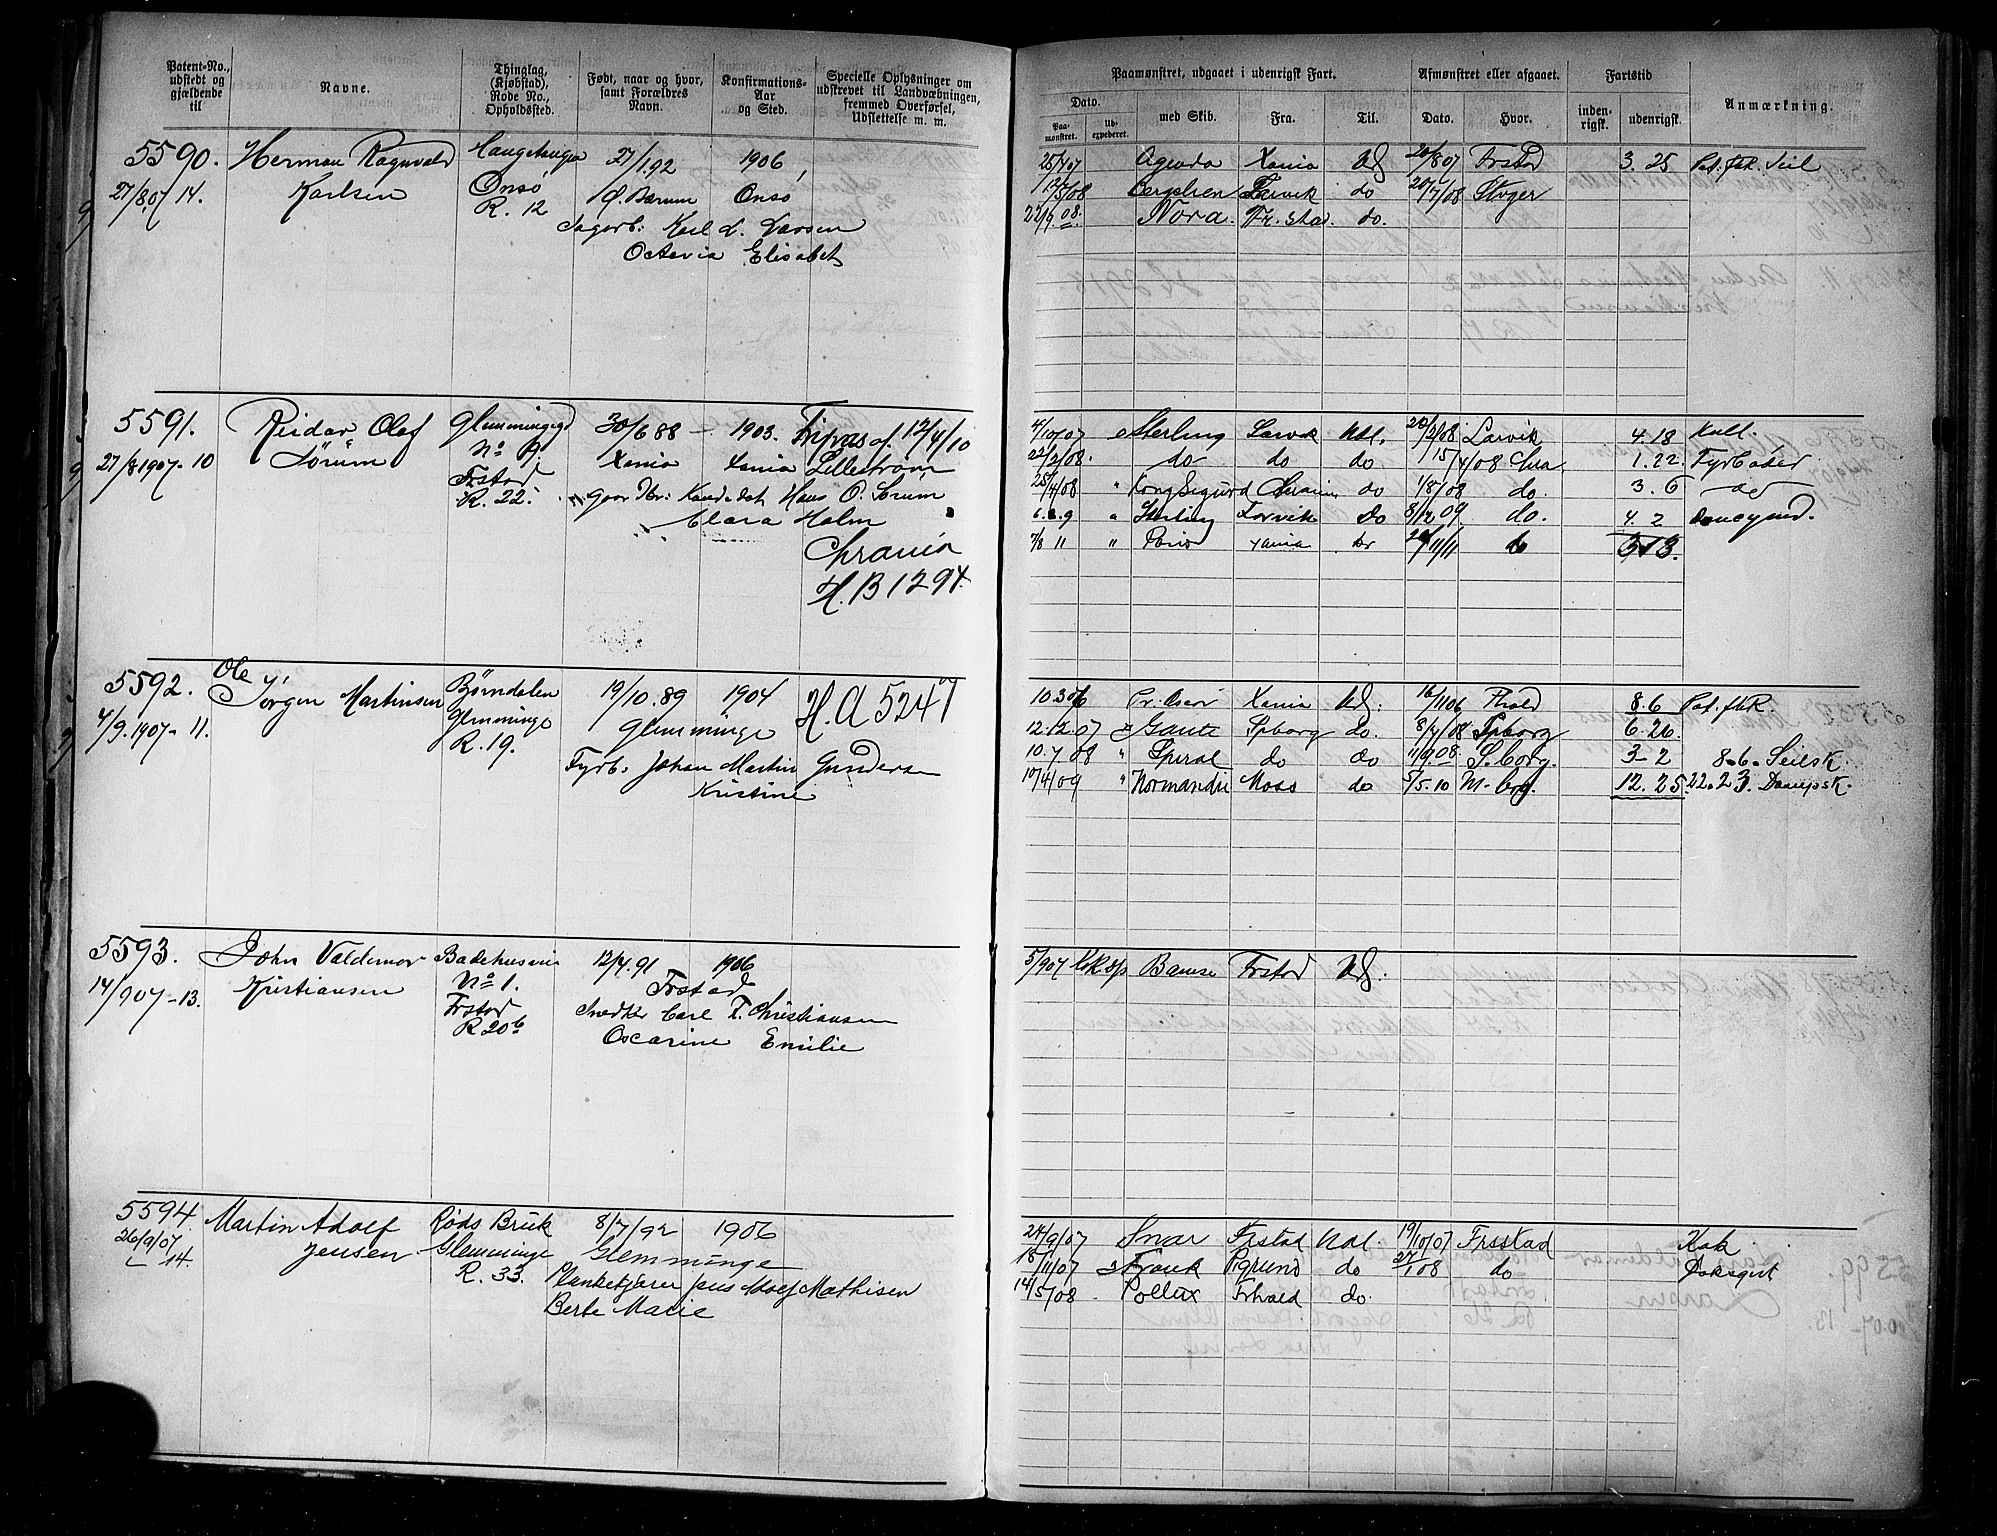 Patent-No., udstedt og gjældende til
Navne.
Thinglag, (Kjøbstad), Rode No., Opholdssted.
Født, naar og hvor, samt Forældres Navn.
Konfirmations-Aar og Sted.
Specielle Oplysninger om udskrevet til Landvæbningen, fremmed Overførsel, Udslettelse m. m.
5590. Herman Ragnvald 27/1.92 1906,
27/8.07 14. Karlsen Onsø Ø. Bærum Onsø
R. 12
Karl L. Larsen
Octavia Elisabet
5591. Reidar Olaf Glemminggd 30/6 88 – 1903. Fripas af 12/4/10
27/8 1907-10 Sørum No 9. Xania Xania Lillestrøm
Frstad
R. 22. Hans O. Sørum
Clara Holm
Chrania
H. B 1294.
5592. Ole Jørgen Martinsen Børndalen 19/10.89 1904 H. A 5247
4/9.1907-11. Glemminge Glemminge
R. 19.
Fyrb. Johan Martin Gundersen
Kristine
5593. John Valdemar Badehusvei 12/4.91 1906
14/9 07-13. Kristiansen No 1. Frstad
Frstad
R 206 Snedker Carl T. Christiansen
Oscarine Emilie
5594. Martin Adolf Røds Bruk 8/7/92 1906
26/9/07 14. Jensen Glemminge Glemminge
R. 33. Plankekjører Jens Adolf Mathisen
Berte Marie
Paamønstret, udgaaet i udenrigsk Fart.
Afmønstret eller afgaaet.
Fartstid
Anmærkning.
Dato.
Paamønstret.
Udexpederet.
med Skib.
Fra.
Til.
Dato.
Hvor.
indenrigsk.
udenrigsk.
25/4 07 Agenda Xania Udl 20/8 07 Frstad 3. 25
Larvik do 20/7/08
22/9.08. Nora. Fr. stad do.
4/10/07 Sterling Larvik Udl. 20/2/08 Larvik 4. 18
22/2/08. do do do 15/4/08 Chra 1. 22. Fyrbøder
25/4/08 " Kong Sigurd Chrania do 1/8/08 do. 3. 6 do
" Sterling Larvik Do 8/12 09. do. 4. 2
7/8 11 " Paris Xania do do
10.3.06 Pr. Oscar Xania Udl. 16/11 06 Fhald 8. 6
12.12.07 Gante Spborg do. 8/4/08 Spborg 6. 26.
10.7 08 " Spiral do do 11/9.08. S.borg. 3-2 8-6. Seilsk.
17/4/09 " Normandie Moss do 5/5.10 M-borg. 12. 25. 22.23. Dampsk.
5/9 07 Bamse Frstad Udl.
24/9/07 Snar Frstad Udl. 19/10/07 Frstad Kok
18/11/07 Frank Pgrund do 27/1 08 do Dæksgut
14/5/08 Pollux Frhald do.